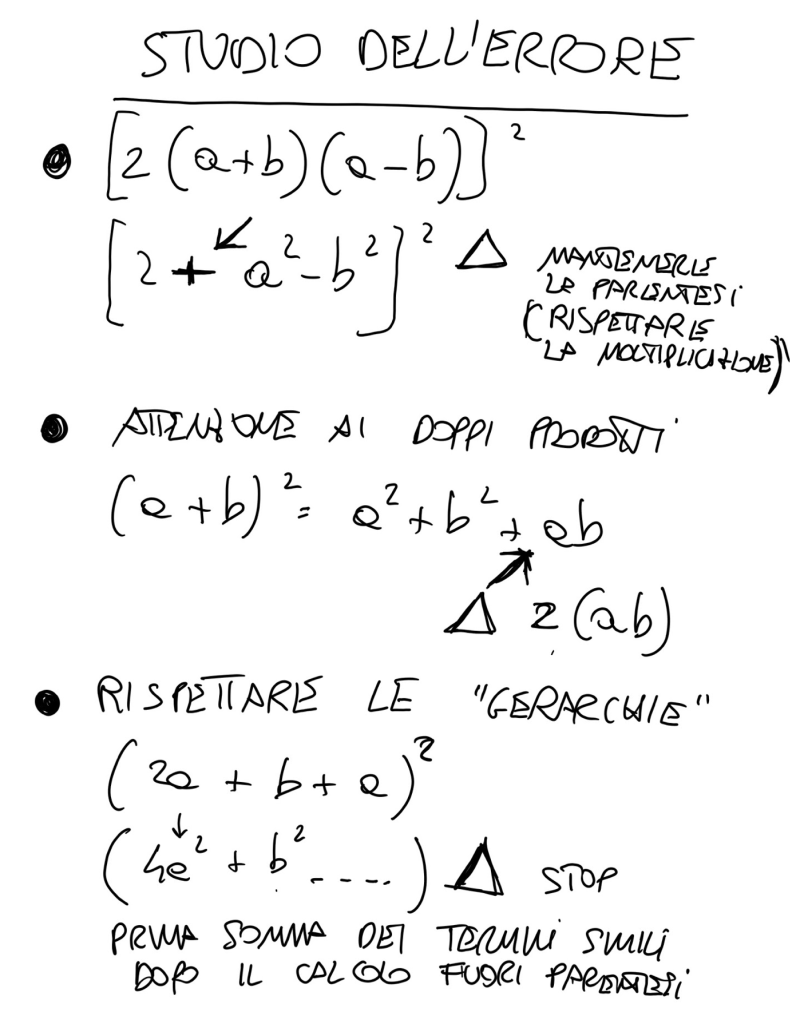 STUDIO DELL'ERRORE
• [2 (a+b)(a-b)]²
[2 + a²-b²]² △ MANTENERLE
LE PARENTESI
(RISPETTARE
LA MOLTIPLICAZIONE)
• ATTENZIONE AI DOPPI PRODOTTI
(a+b)² = a²+b²+ab
△ 2(ab)
• RISPETTARE LE "GERARCHIE"
(2a + b + a)²
(4a² + b² ----) △ STOP
PRIMA SOMMA DEI TERMINI SIMILI
DOPO IL CALCOLO FUORI PARENTESI